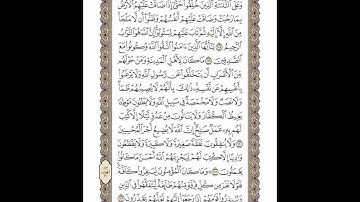 وَعَلَى ٱلثَّلَٰثَةِ ٱلَّذِينَ خُلِّفُوا۟ حَتَّىٰٓ إِذَا ضَاقَتْ عَلَيْهِمُ ٱلْأَرْضُ
بِمَا رَحُبَتْ وَضَاقَتْ عَلَيْهِمْ أَنفُسُهُمْ وَظَنُّوٓا۟ أَن لَّا مَلْجَأَ
مِنَ ٱللَّهِ إِلَّآ إِلَيْهِ ثُمَّ تَابَ عَلَيْهِمْ لِيَتُوبُوٓا۟ إِنَّ ٱللَّهَ هُوَ ٱلتَّوَّابُ
ٱلرَّحِيمُ ١١٨ يَٰٓأَيُّهَا ٱلَّذِينَ ءَامَنُوا۟ ٱتَّقُوا۟ ٱللَّهَ وَكُونُوا۟ مَعَ
ٱلصَّٰدِقِينَ ١١٩ مَا كَانَ لِأَهْلِ ٱلْمَدِينَةِ وَمَنْ حَوْلَهُم
مِّنَ ٱلْأَعْرَابِ أَن يَتَخَلَّفُوا۟ عَن رَّسُولِ ٱللَّهِ وَلَا يَرْغَبُوا۟
بِأَنفُسِهِمْ عَن نَّفْسِهِۦ ذَٰلِكَ بِأَنَّهُمْ لَا يُصِيبُهُمْ ظَمَأٌ
وَلَا نَصَبٌ وَلَا مَخْمَصَةٌ فِى سَبِيلِ ٱللَّهِ وَلَا يَطَـُٔونَ مَوْطِئًا
يَغِيظُ ٱلْكُفَّارَ وَلَا يَنَالُونَ مِنْ عَدُوٍّ نَّيْلًا إِلَّا كُتِبَ
لَهُم بِهِۦ عَمَلٌ صَٰلِحٌ إِنَّ ٱللَّهَ لَا يُضِيعُ أَجْرَ ٱلْمُحْسِنِينَ
١٢٠ وَلَا يُنفِقُونَ نَفَقَةً صَغِيرَةً وَلَا كَبِيرَةً وَلَا يَقْطَعُونَ
وَادِيًا إِلَّا كُتِبَ لَهُمْ لِيَجْزِيَهُمُ ٱللَّهُ أَحْسَنَ مَا كَانُوا۟
يَعْمَلُونَ ١٢١ وَمَا كَانَ ٱلْمُؤْمِنُونَ لِيَنفِرُوا۟ كَآفَّةً
فَلَوْلَا نَفَرَ مِن كُلِّ فِرْقَةٍ مِّنْهُمْ طَآئِفَةٌ لِّيَتَفَقَّهُوا۟ فِى ٱلدِّينِ
وَلِيُنذِرُوا۟ قَوْمَهُمْ إِذَا رَجَعُوٓا۟ إِلَيْهِمْ لَعَلَّهُمْ يَحْذَرُونَ ١٢٢